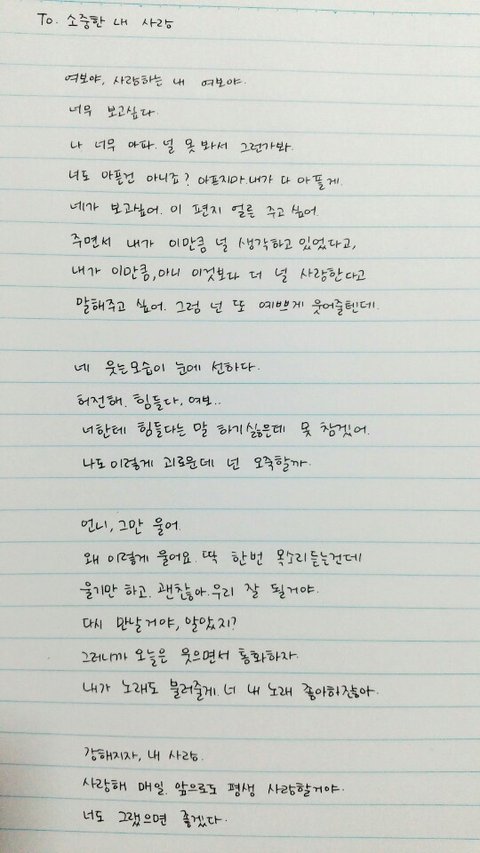 To. 소중한 내 사랑
여보야, 사랑하는 내 여보야.
너무 보고싶다.
나 너무 아파. 널 못 봐서 그런가봐.
너도 아플건 아니죠? 아프지마. 내가 다 아플게.
네가 보고싶어. 이 편지 얼른 주고 싶어.
주면서 내가 이만큼 널 생각하고 있었다고,
내가 이만큼, 아니 이것보다 더 널 사랑한다고
말해주고 싶어. 그럼 넌 또 예쁘게 웃어줄텐데.
네 웃는모습이 눈에 선하다.
허전해. 힘들다, 여보..
너한테 힘들다는 말 하기싫은데 못 참겠어.
나도 이렇게 괴로운데 넌 오죽할까.
언니, 그만 울어.
왜 이렇게 울어요. 딱 한번 목소리듣는건데
울기만 하고. 괜찮아. 우리 잘 될거야.
다시 만날거야, 알았지?
그러니까 오늘은 웃으면서 통화하자.
내가 노래도 불러줄게. 너 내 노래 좋아하잖아.
강해지자, 내 사랑.
사랑해 매일. 앞으로도 평생 사랑할거야.
너도 그랬으면 좋겠다.